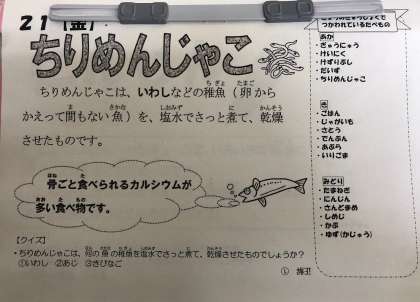 21【金】
ちりめんじゃこ
ちりめんじゃこは、いわしなどの稚魚（卵から
かえって間もない魚）を、塩水でさっと煮て、乾燥
させたものです。
骨ごと食べられるカルシウムが
多い食べ物です。
【クイズ】
・ちりめんじゃこは、何の魚の稚魚を塩水でさっと煮て、乾燥させたものでしょうか？
①いわし ②あじ ③きびなご
つかわれているたべもの
あか
・ぎゅうにゅう
・けいにく
・けずりぶし
・だいず
・ちりめんじゃこ
き
・ごはん
・じゃがいも
・さとう
・でんぷん
・あぶら
・いりごま
みどり
・たまねぎ
・にんじん
・さんどまめ
・しめじ
・かぶ
・ゆず(かじゅう)